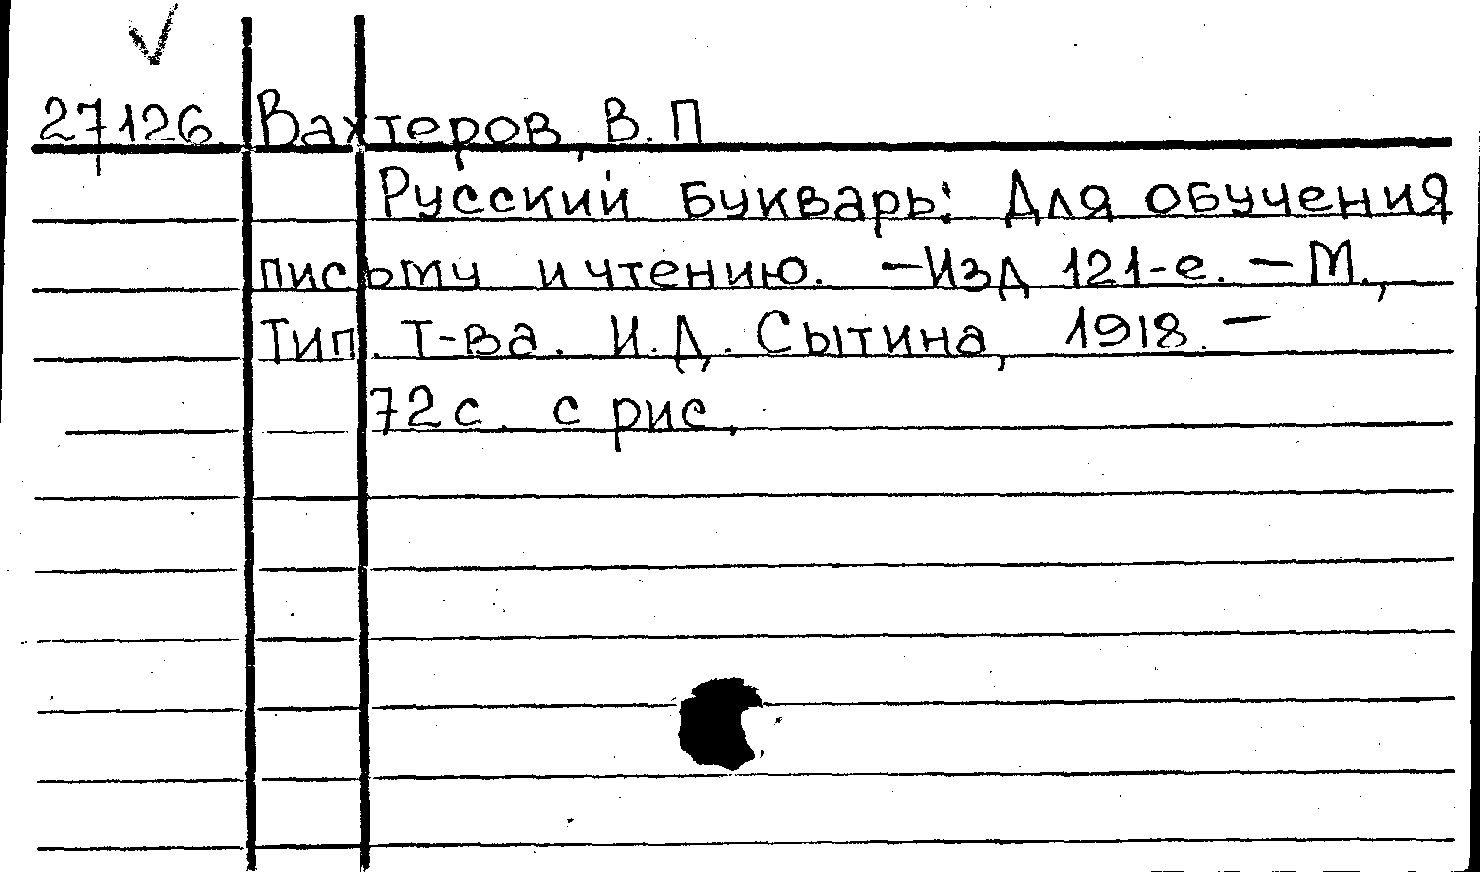 27126 Вахтеров, В. П
Русский букварь: Для обучения
письму и чтению. – Изд 121-е. – М.,
Тип. Т-ва. И. Д. Сытина, 1918. –
72 с. с рис.